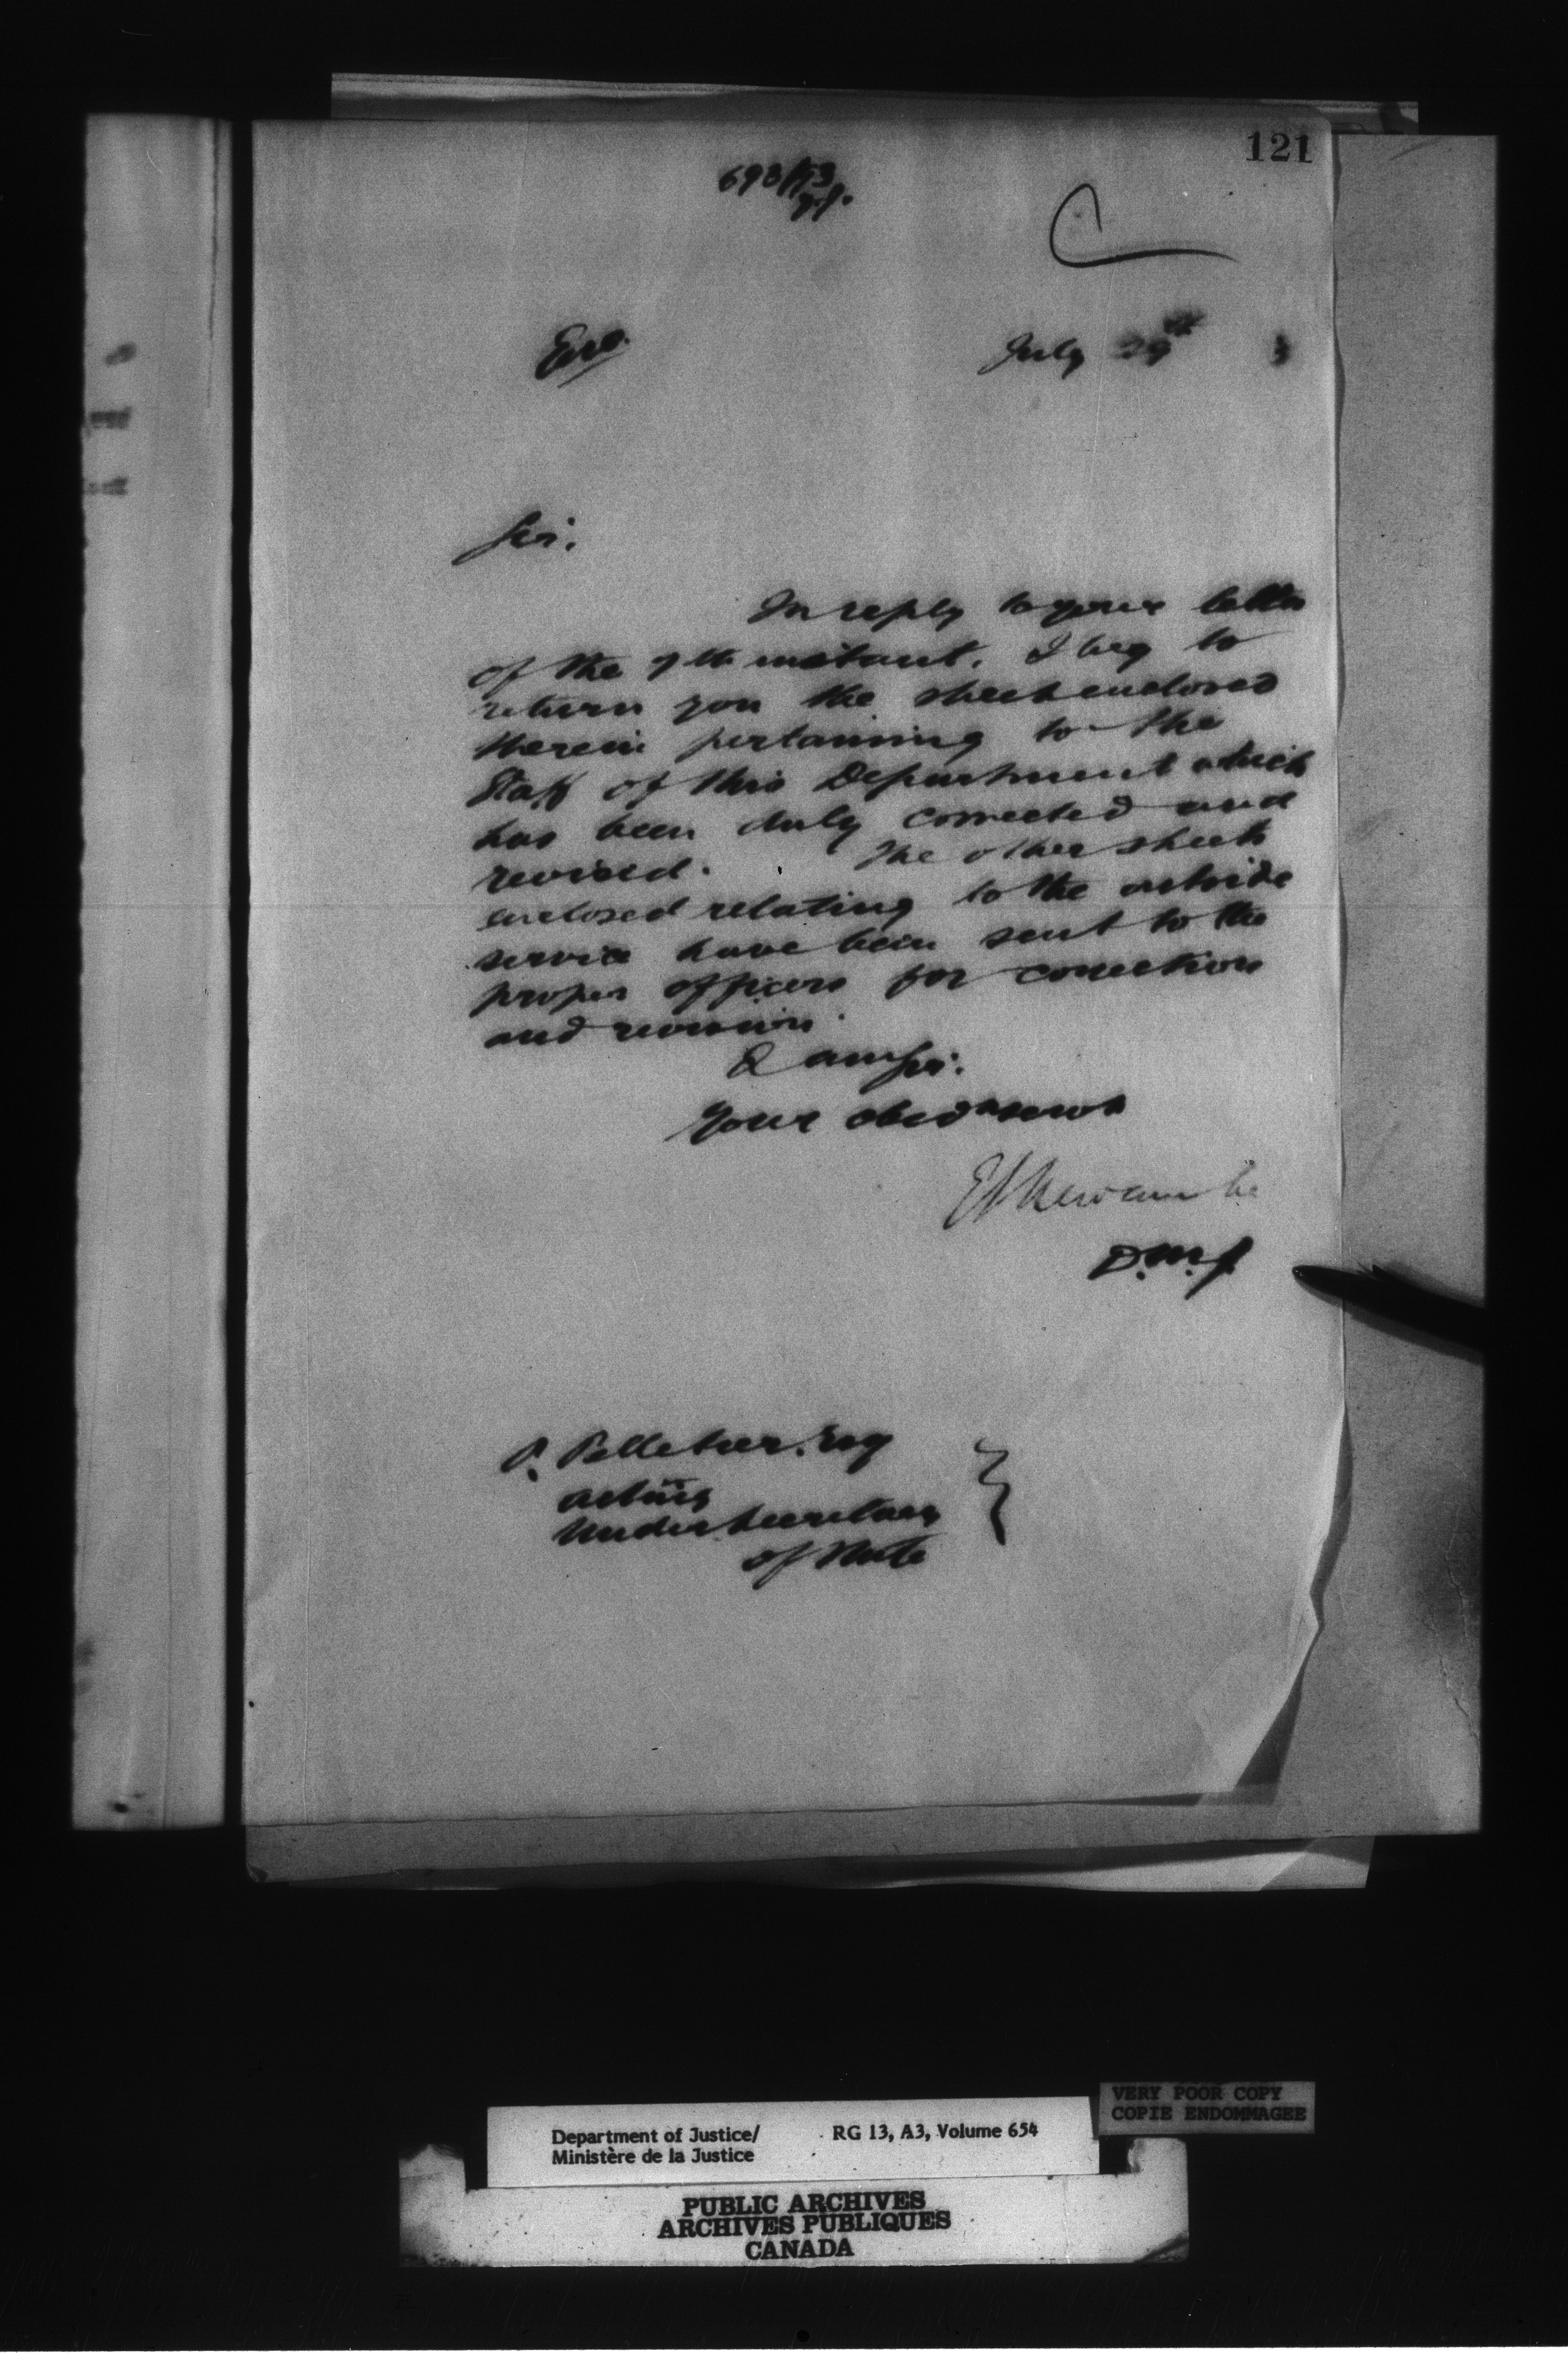 121
693/93
July 29th 3
Sir.
In reply to your letter
of the 7th instant. I beg to
return you the sheet enclosed
therein pertaining to the
Staff of this Department which
has been duly corrected and
revised. The other sheets
enclosed relating to the outside
service have been sent to the
proper officers for correction
and revision.
I am Sir.
Your obedt servt
E L Newcombe
D.M.J.
P. Pelletier. Esq
acting
Under Secretary
of State
VERY POOR COPY
COPIE ENDOMMAGEE
Department of Justice/ RG 13, A3, Volume 654
Ministère de la Justice
PUBLIC ARCHIVES
ARCHIVES PUBLIQUES
CANADA